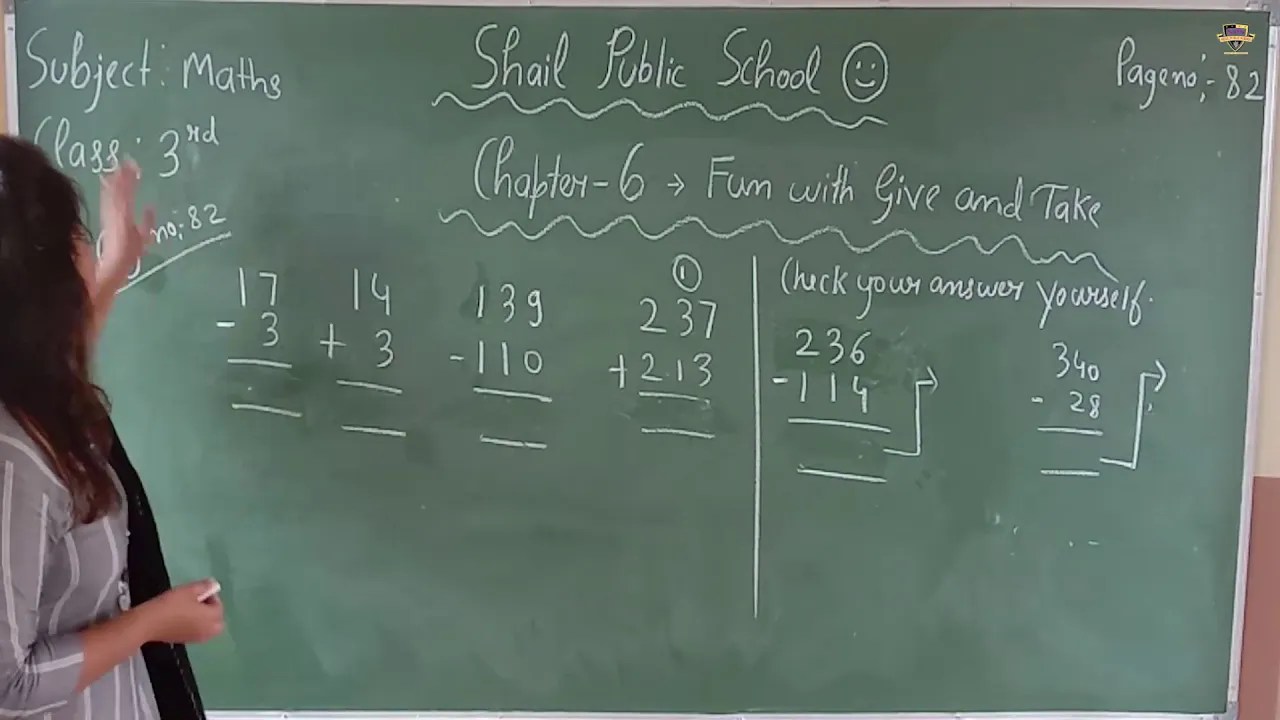 Subject: Maths
Shail Public School
Page no:- 82
Class: 3rd
Chapter-6 → Fun with Give and Take
no: 82
17
- 3
14
+ 3
139
-110
1
237
+213
Check your answer yourself.
236
-114
340
- 28